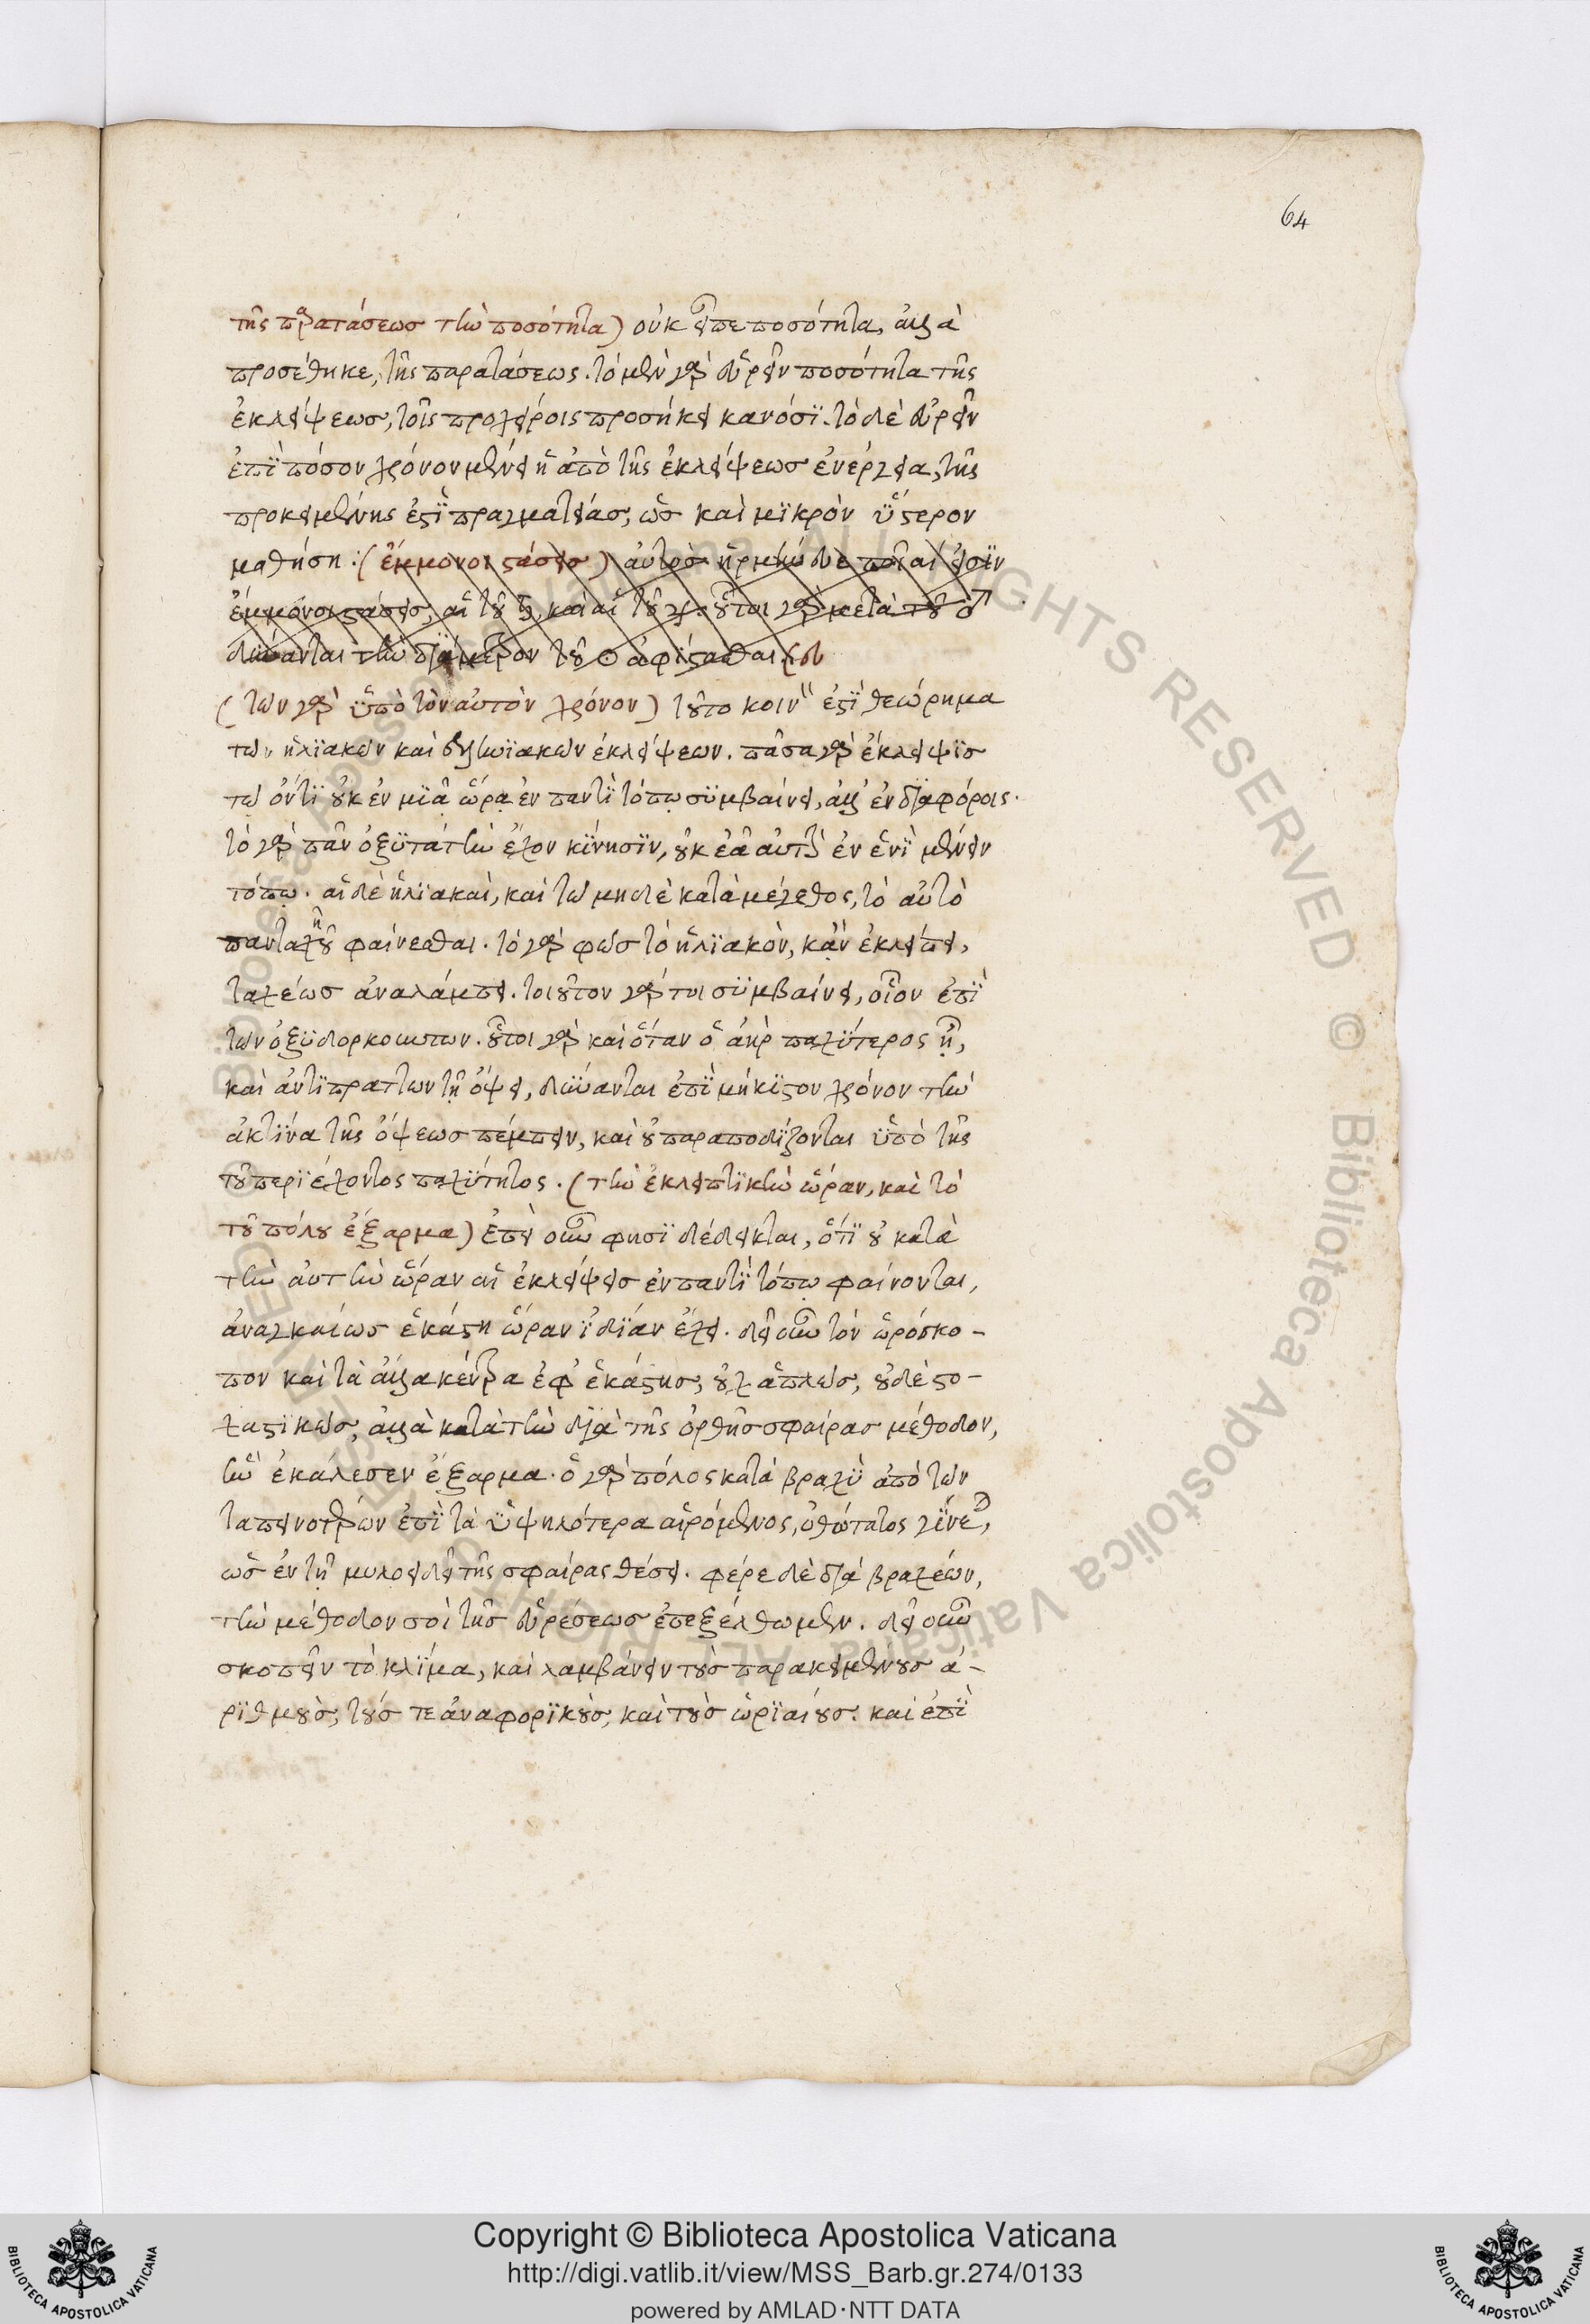 64
τῆς παρατάσεως τὴν ποσότητα) οὐκ εἶπε ποσότητα, ἀλλὰ
προσέθηκε, τῆς παρατάσεως. τὸ μὲν γὰρ εὑρεῖν ποσότητα τῆς
ἐκλείψεως, τοῖς προχείροις προσήκει κανόσϊ. τὸ δὲ εὑρεῖν
ἐπῒ πόσον χρόνον μένει ἡ ἀπὸ τῆς ἐκλείψεως ἐνέργεια, τῆς
προκειμένης ἐστῒ πραγματείας, ὡς καὶ μϊκρὸν ὕστερον
μαθήση: (ἔμμονοι στάσεις) αὐτὸς ἡρμήνευσε ποῖαί εἰσϊν
ἔμμονοι στάσεις, αἱ τοῦ ♄, καὶ αἱ τοῦ ♃ οὗτοι γὰρ μετὰ τοῦ ♂
δύνανται τὴν διάμετρον τοῦ ☉ ἀφίστασθαι
(τῶν γὰρ ὑπὸ τὸν αὐτὸν χρόνον) τοῦτο κοινὸν ἐστῒ θεώρημα
τῶν ἡλϊακῶν καὶ σεληνϊακῶν ἐκλείψεων. πᾶσα γὰρ ἔκλειψϊς
τῷ ὄντϊ οὐκ ἐν μϊᾷ ὥρᾳ ἐν παντῒ τόπῳ συμβαίνει, ἀλλ' ἐν διαφόροις.
τὸ γὰρ πᾶν ὀξϋτάτην ἔχον κίνησϊν, οὐκ ἐᾷ αὐτὴν ἐν ἑνῒ μένειν
τόπῳ. αἱ δὲ ἡλϊακαὶ, καὶ τῷ μηδὲ κατὰ μέγεθος, τὸ αὐτὸ
πανταχοῦ φαίνεσθαι. τὸ γὰρ φῶς τὸ ἡλϊακὸν, κἂν ἐκλείπει,
ταχέως ἀναλάμπει. τοιοῦτον γάρ τοι συμβαίνει, οἷον ἐπῒ
τῶν ὀξϋδορκούντων. οὗτοι γὰρ καὶ ὅταν ὁ ἀὴρ παχύτερος ᾖ,
καὶ ἀντϊπράττων τῇ ὄψει, δύνανται ἐπῒ μήκϊστον χρόνον τὴν
ἀκτῖνα τῆς ὄψεως πέμπειν, καὶ οὐ παραποδίζονται ὑπὸ τῆς
τοῦ περϊέχοντος παχύτητος. (τὴν ἐκλειπτϊκὴν ὥραν, καὶ τὸ
τοῦ πόλου ἔξαρμα) ἐπεὶ οὖν φησϊ δέδεικται, ὅτϊ οὐ κατὰ
τὴν αὐτὴν ὥραν αἱ ἐκλείψεις ἐν παντῒ τόπῳ φαίνονται,
ἀναγκαίως ἑκάστη ὥραν ἰδϊάν ἔχει. δεῖ οὖν τὸν ὡρόσκο-
πον καὶ τὰ ἄλλα κέντρα ἐφ' ἑκάστης, οὐχ ἁπλῶς, οὐδὲ στο-
χαστϊκῶς, ἀλλὰ κατὰ τὴν διὰ τῆς ὀρθῆς σφαίρας μέθοδον,
ἣν ἐκάλεσεν ἔξαρμα. ὁ γὰρ πόλος κατὰ βραχὺ ἀπὸ τῶν
ταπεινοτέρων ἐπῒ τὰ ὑψηλότερα αἰρόμενος, ὀρθώτατος γίνεται,
ὡς ἐν τῇ μυλοειδεῖ τῆς σφαίρας θέσει. φέρε δὲ διὰ βραχέων,
τὴν μέθοδον σοὶ τῆς εὑρέσεως ἐπεξέλθωμεν. δεῖ οὖν
σκοπεῖν τὸ κλίμα, καὶ λαμβάνειν τοὺς παρακειμένους ἀ-
ρϊθμοὺς, τούς τε ἀναφορϊκοὺς, καὶ τοὺς ὡρϊαίους. καὶ ἐπῒ
Copyright © Biblioteca Apostolica Vaticana
http://digi.vatlib.it/view/MSS_Barb.gr.274/0133
powered by AMLAD·NTT DATA